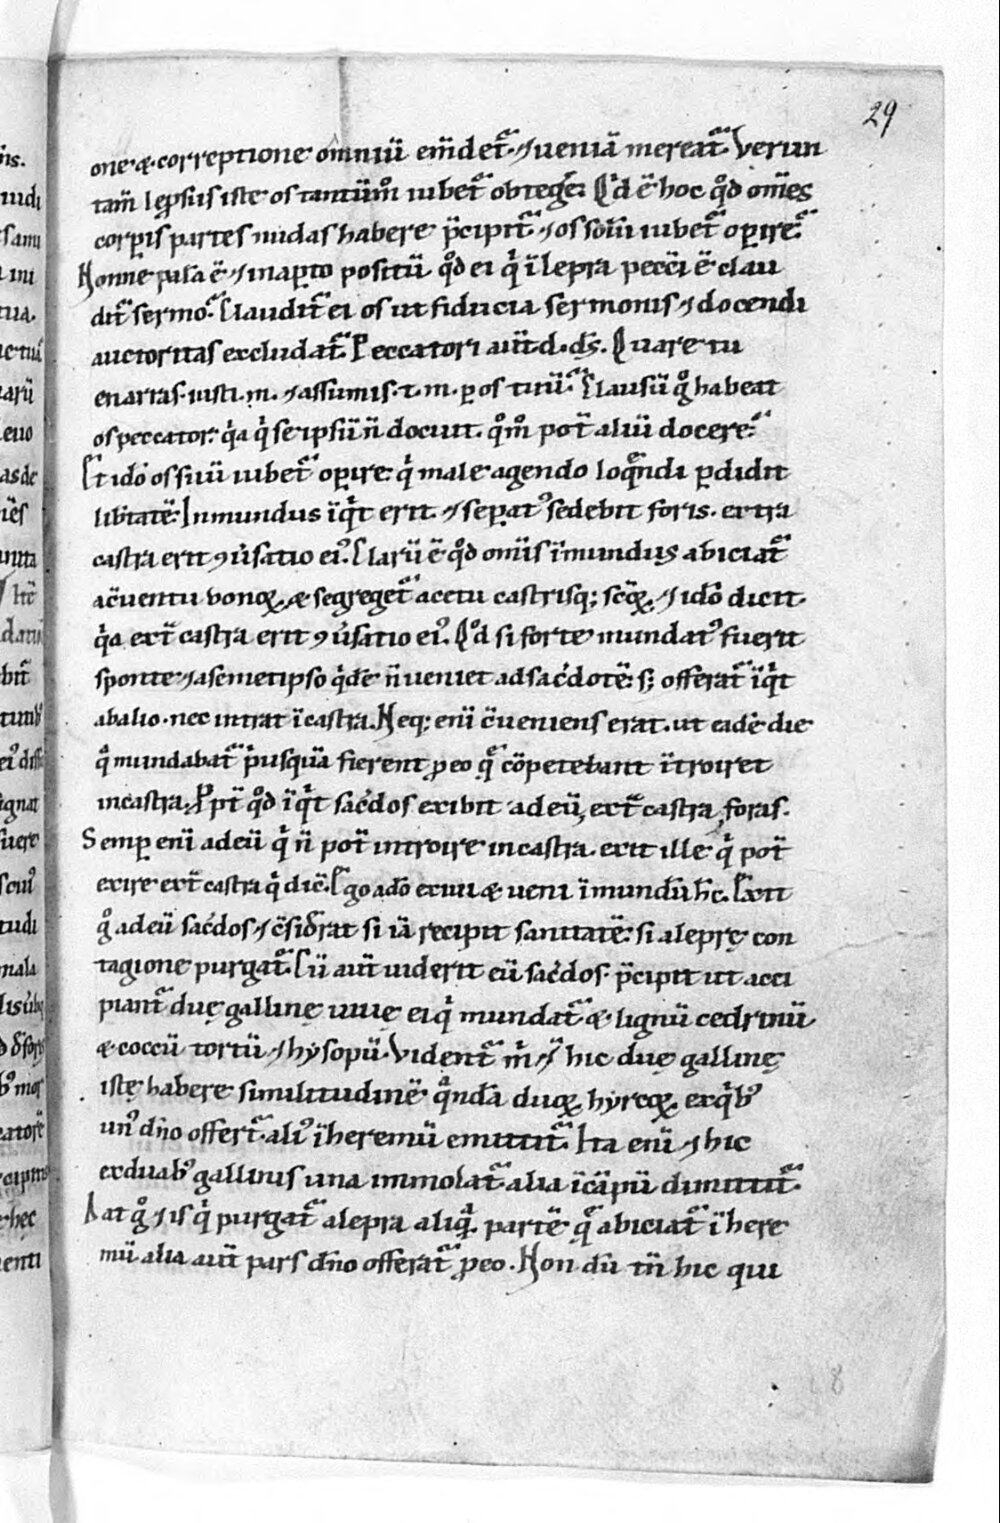 29
one & correptione omniū em̄det᷑ ⁊ ueniā mereat᷑. Verun
tam̄ lep̄sus iste os tantūm̊ iubet᷑ obtegẹ. Qͥd ē hoc qd̊ om̄es
corꝑis partes nudas habere p̄cipit᷑ ⁊ os solū iubet᷑ oꝑire.
Nonne pala ē ⁊ inaꝑto positū qd̊ ei qͥ ī lepra pecc̄i ē clau
dit᷑ sermo. Claudit᷑ ei os ut fiducia sermonis ⁊ docendi
auctoritas excludat᷑. Peccatori aūt d. ds̄. Quare tu
enarras. iusti. m. ⁊ assumis. t. m. ꝑ os tuū. Clausū gͦ habeat
os peccator. qͥa qͥ se ipsū n̄ docuit. qm̊ pot̄ aliū docere.
Et idō os suū iubet᷑ oꝑire. qͥ male agendo loquendi ꝑdidit
lib̄tatē. Inmundus īqͥt erit. ⁊ seꝑat᷒ sedebit foris. extra
castra erit ꝯv̄satio ei᷒. Clarū ē qd̊ om̄is īmundus abiciat᷑
ac̄uentu bonoꝝ & segreget᷑ acetu castrisq; sc̄oꝝ. ⁊ idō dicit.
qͥa ext̄ castra erit ꝯv̄satio ei᷒. Qd̊ si forte mundat᷒ fuerit
sponte ⁊ asemetipso qͥdē n̄ ueniet adsac̄dotē. s; offerat᷑ īqͥt
abalio. nec intrat īcastra. Neq; eni c̄ueniens erat. ut eadē die
qͣ mundabat᷑ pͥusquā fierent pro eo q᷑ cōpetebant ītroiret
incastra. Ppt̄ qd̊ īqͥt sac̄dos exibit adeū ext̄ castra foras.
Semꝑ eni adeū qͥ n̄ pot̄ introire incastra. exit ille qͥ pot̄
exire ext̄ castra qͥ dic̄. Ego adō exiui & ueni īmundū hc̄. Exit
gͦ adeū sac̄dos ⁊ c̄sid̄rat si iā recipit sanitatē. si alepre con
tagione purgat᷑. Cū aūt uiderit eū sac̄dos p̄cipit ut acci
piant᷑ due galline uiue ei qͥ mundat᷑ & lignū cedrinū
& coccū tortū ⁊ hysopū. Vident᷑ m̄ ⁊ hic due galline
iste habere similitudinē qͣndā duoꝝ hyrcoꝝ. exqͥb᷒
un᷒ dn̄o offert᷑. ali᷒ īheremū emittit᷑. Ita eni ⁊ hic
exduab᷒ gallinis una immolat᷑. alia īcāpū dimittit᷑.
At gͦ ⁊ is qͥ purgat᷑ alepra aliqͣ parte q᷑ abiciat᷑ īhere
mū alia aūt pars dn̄o offerat᷑ pro eo. Non dū tn̄ hic qui